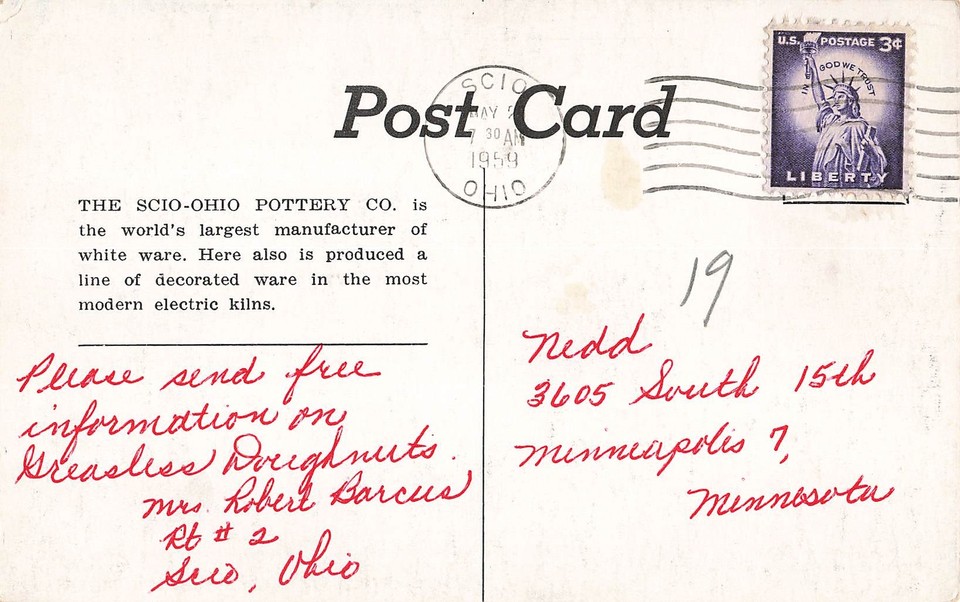 Post Card
SCIO
MAY 2
7 30 AM
1959
OHIO
U.S. POSTAGE 3¢
IN GOD WE TRUST
LIBERTY
THE SCIO-OHIO POTTERY CO. is
the world's largest manufacturer of
white ware. Here also is produced a
line of decorated ware in the most
modern electric kilns.
Please send free
information on
Greasless Doughnuts.
Mrs. Robert Barcus
Rt # 2
Scio, Ohio
19
Nedd
3605 South 15th
Minneapolis 7,
Minnesota